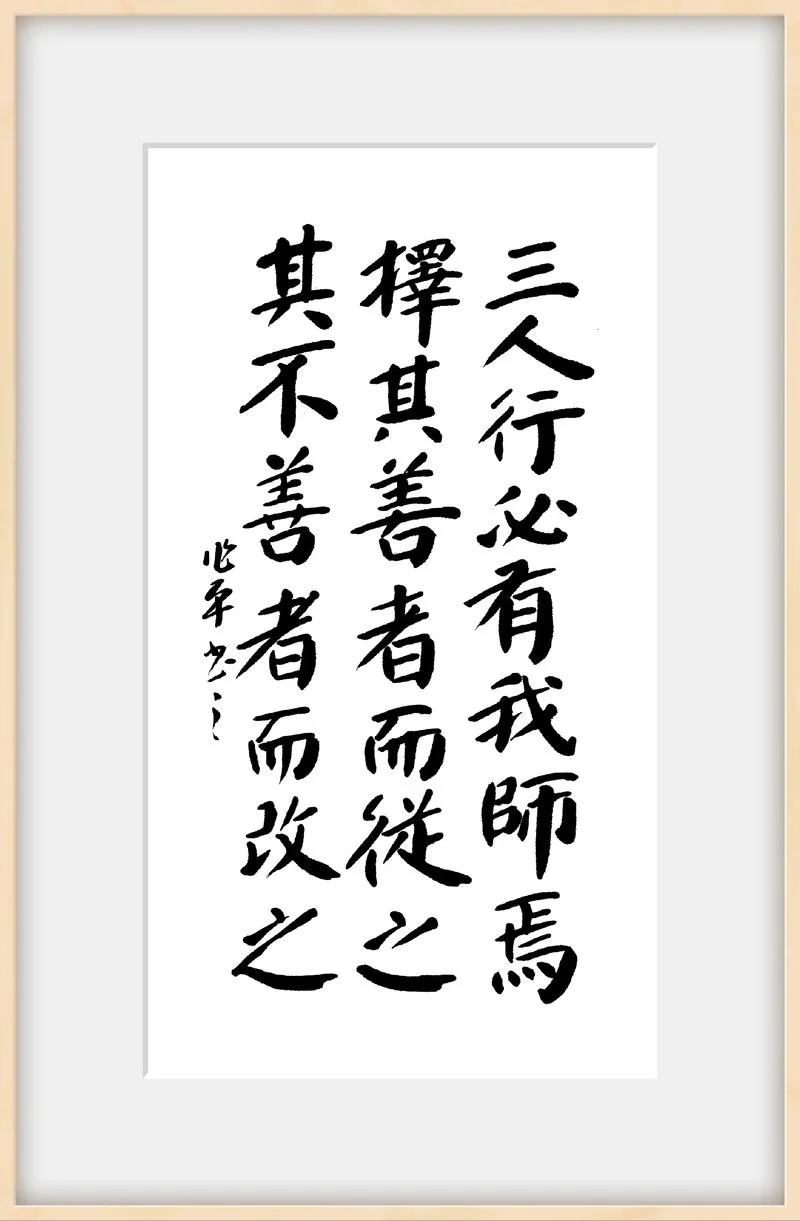 三人行必有我師焉
擇其善者而從之
其不善者而改之